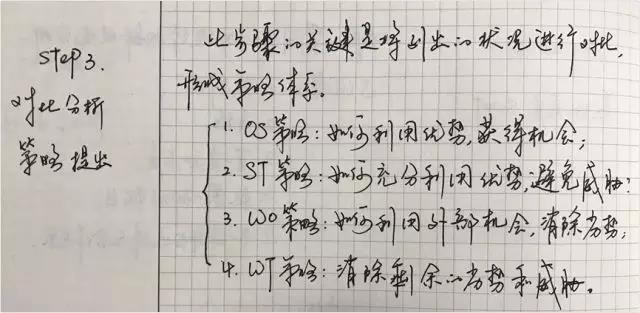 Step 3.
对比分析
策略提出
此步骤的关键是将列出的状况进行对比,
形成策略体系。
1. OS策略:如何利用优势,获得机会;
2. ST策略:如何充分利用优势,避免威胁?
3. WO策略:如何利用外部机会,消除劣势;
4. WT策略:消除剩余的劣势和威胁。